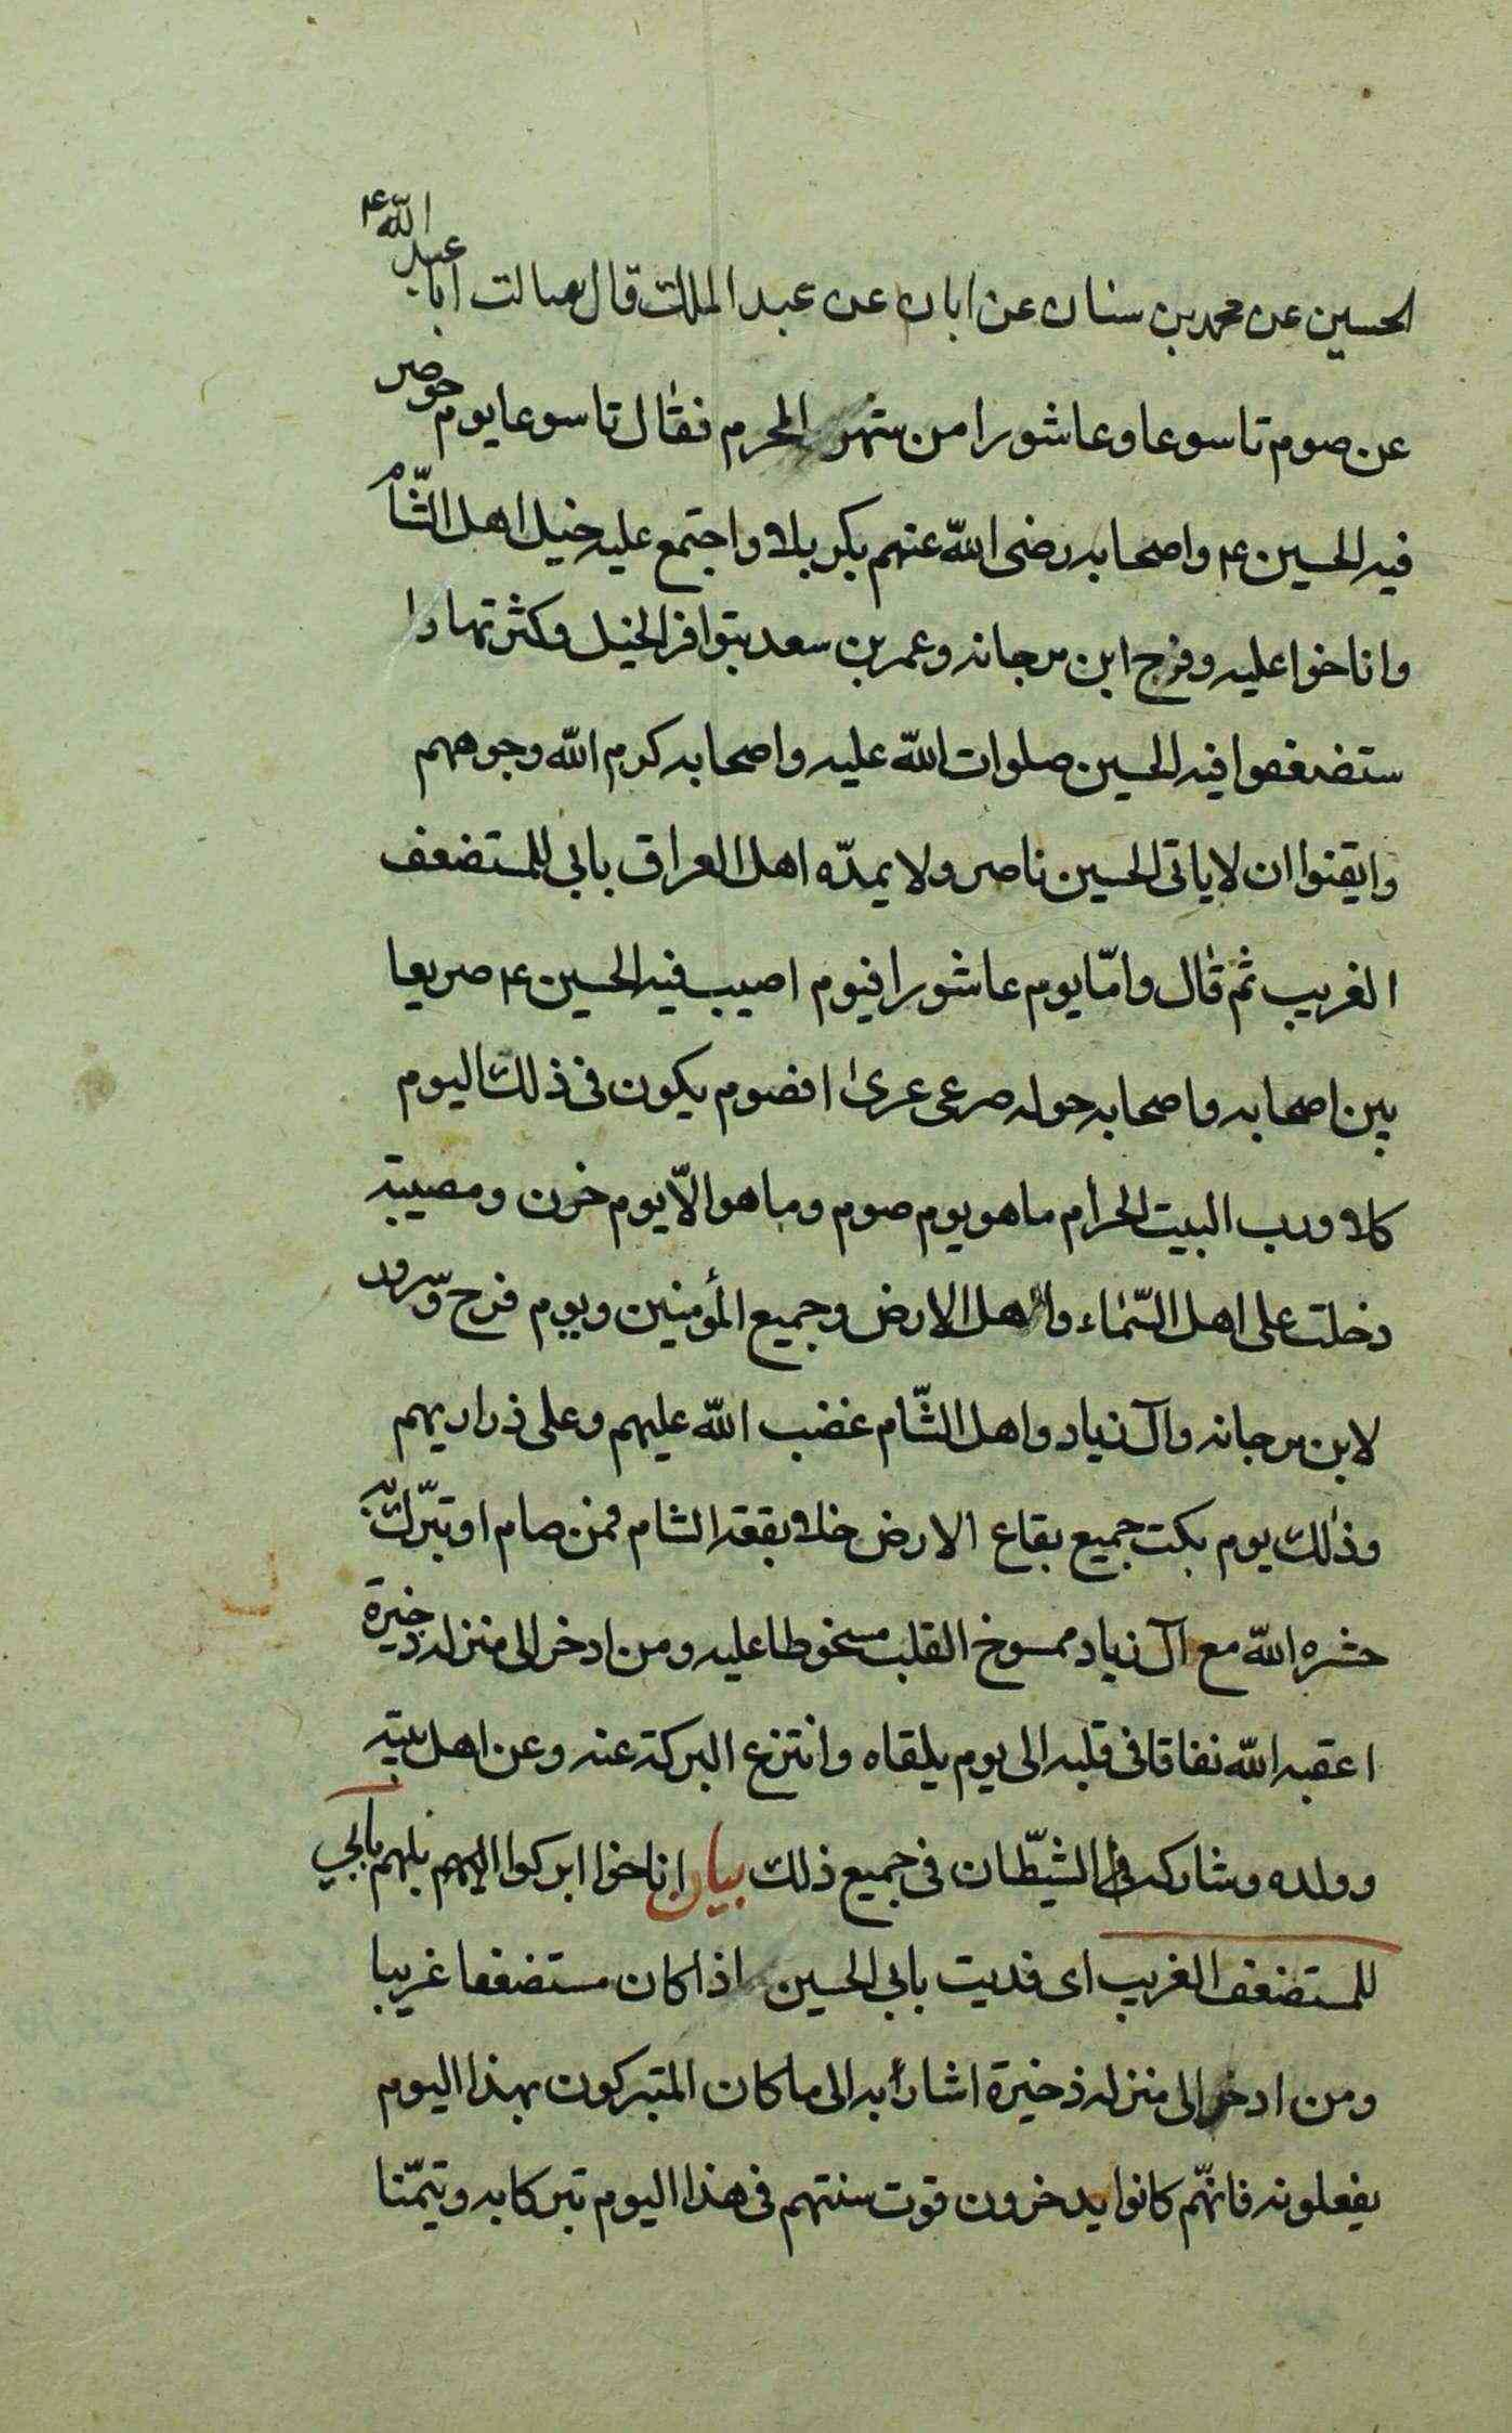 الحسين عن محمد بن سنان عن ابان عن عبد الملك قال سالت ابا عبد الله ع
عن صوم تاسوعا وعاشورا من شهر المحرم فقال تاسوعا يوم حوصر
فيه الحسين ع واصحابه رضى الله عنهم بكربلا واجتمع عليه خيل اهل الشّام
واناخوا عليه وفرح ابن مرجانه وعمر بن سعد بتوافر الخيل وكثرتها وا
ستضعفوا فيه الحسين صلوات الله عليه واصحابه كرم الله وجوههم
وايقنوا ان لا ياتى الحسين ناصر ولا يمدّه اهل العراق بابى المستضعف
الغريب ثم قال وامّا يوم عاشورا فيوم اصيب فيه الحسين ع صريعا
بين اصحابه واصحابه حوله صرعى عرى افصوم يكون فى ذلك اليوم
كلا ورب البيت الحرام ما هو يوم صوم وما هو الّا يوم حزن ومصيبة
دخلت على اهل السّماء واهل الارض وجميع المؤمنين ويوم فرح وسرور
لابن مرجانه وآل زياد واهل الشّام غضب الله عليهم وعلى ذراريهم
وذلك يوم بكت جميع بقاع الارض خلا بقعة الشام فمن صام او تبرّك به
حشره الله مع آل زياد ممسوخ القلب مسخوطا عليه ومن ادخر الى منزله ذخيرة
اعقبه الله نفاقا فى قلبه الى يوم يلقاه وانتزع البركة عنه وعن اهل بيته
وولده وشاركه الشّيطان فى جميع ذلك بيان اناخوا ابركوا ابلهم بابى
للمستضعف الغريب اى فديت بابى الحسين اذا كان مستضعفا غريبا
ومن ادخر الى منزله ذخيرة اشارة به الى ما كان المتبركون بهذا اليوم
يفعلونه فانّهم كانوا يدخرون قوت سنتهم فى هذا اليوم تبركا به وتيمّنا